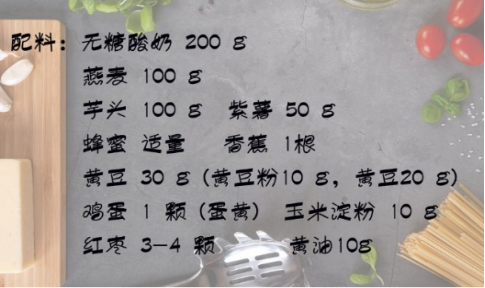 配料：无糖酸奶 200 g
燕麦 100 g
芋头 100 g 紫薯 50 g
蜂蜜 适量 香蕉 1根
黄豆 30 g (黄豆粉10 g，黄豆20 g)
鸡蛋 1 颗 (蛋黄) 玉米淀粉 10 g
红枣 3-4 颗 黄油10g